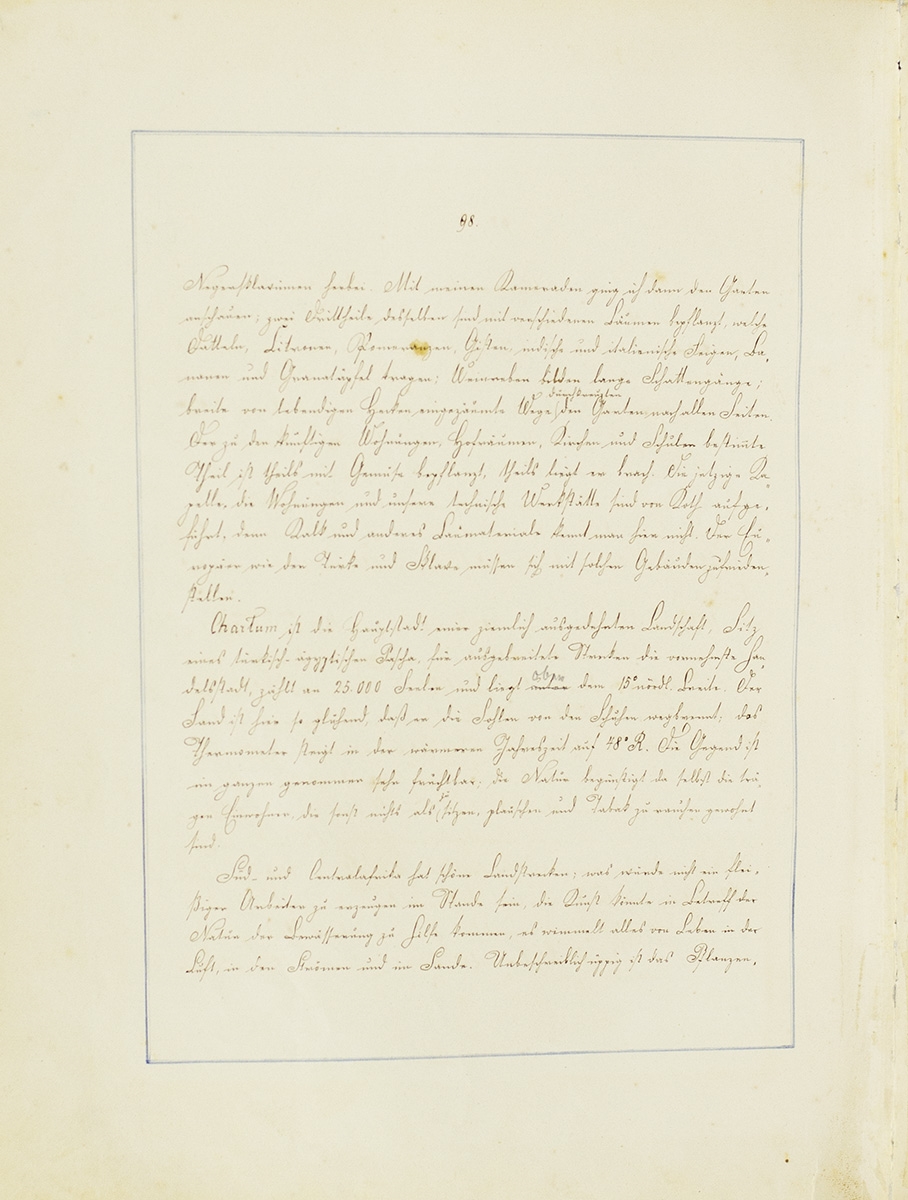 98.
Negersklavinnen herbei. Mit meinen Kameraden ging ich dann den Garten
anschauen; zwei Drittheile desselben sind mit verschiedenen Bäumen bepflanzt, welche
Datteln, Citronen, Pomeranzen, indische und italienische Feigen, Ba-
nanen und Granatäpfel tragen; Weinreben bilden lange Schattengänge;
durchkreuzten
breite von lebendigen Hecken eingezäunte Wege den Garten nach allen Seiten.
Der zu den künftigen Wohnungen, Hofräumen, Kirchen und Schulen bestimte
Theil ist theils mit Gemüse bepflanzt, theils liegt er brach. Die jetzige Ka-
pelle, die Wohnungen und unsere technische Werkstätte sind von Koth aufge-
führt, denn Kalk und anderes Baumateriale kennt man hier nicht. Der Eu-
ropäer wie der Türke und Sklave müssen sich mit solchen Gebäuden zufrieden-
stellen.
Chartum ist die Hauptstadt einer ziemlich ausgedehnten Landschaft, Sitz
eines türkisch-ägyptischen Pascha, für ausgebreitete Strecken die vornehmste Han-
oben
delsstadt, zählt an 25.000 Seelen und liegt unter dem 15° nördl. Breite. Der
Sand ist hier so glühend, daß er die Sohlen von den Schuhen wegbrennt; das
Thermometer steigt in der wärmeren Jahreszeit auf 48° R. Die Gegend ist
im ganzen genommen sehr fruchtbar; die Natur begünstigt da selbst die trä-
zu
gen Einwohner, die sonst nichts als sitzen, plauschen und Tabak zu rauchen gewohnt
sind.
Süd- und Centralafrika hat schöne Landstrecken; was würde nicht ein flei-
ßiger Arbeiter zu erzeugen im Stande sein, die Kunst könnte in Betreff der
Natur der Bewässerung zu Hilfe kommen, es wimmelt alles von Leben in der
Luft, in den Strömen und im Sande. Unbeschreiblich üppig ist das Pflanzen-